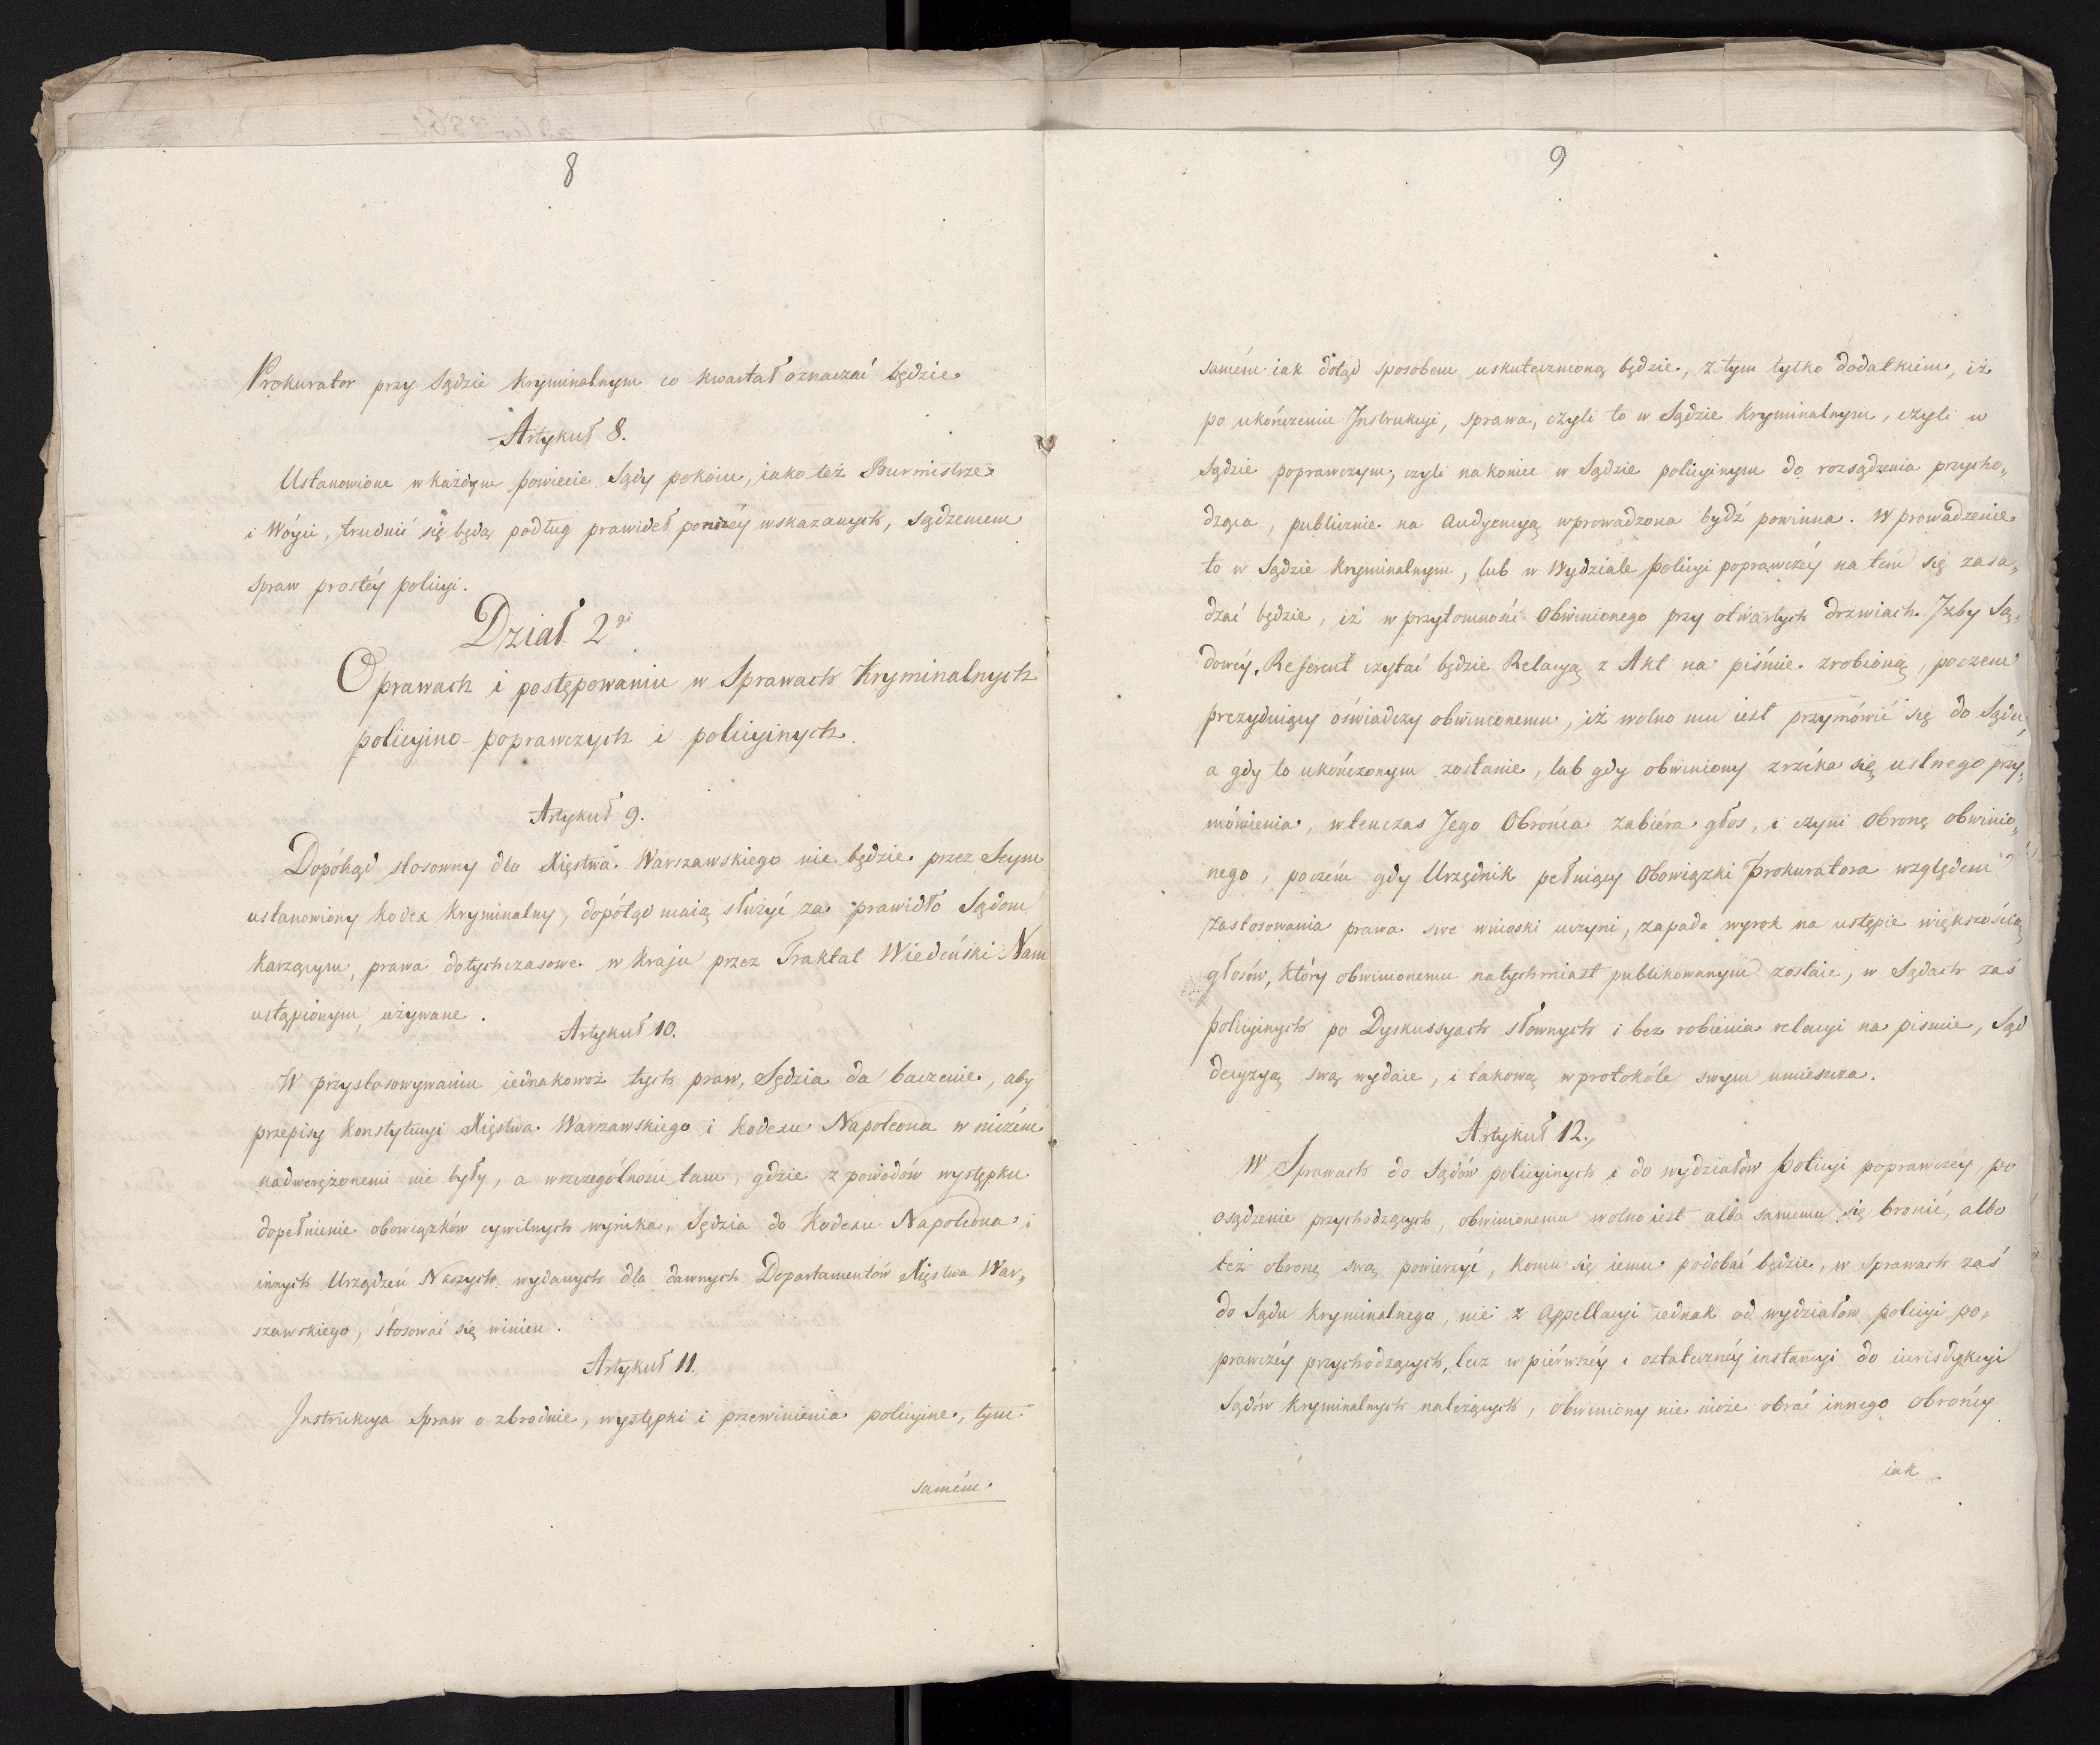 8
Prokurator przy Sądzie Kryminalnym co kwartał oznaczać będzie
Artykuł 8.
Ustanowione w każdym powiecie Sądy pokoiu, iako też Burmistrze
i Wóyci, trudnić się będą podług prawideł poniżéy wskazanych, sądzeniem
spraw prostéy policyi.
Dział 2gi
O prawach i postępowaniu w Sprawach Kryminalnych
policyino-poprawczych i policyinych.
Artykuł 9.
Dopókąd stosowny dla Xięstwa Warszawskiego nie będzie przez Seym
ustanowiony Kodex Kryminalny, dopótąd maią służyć za prawidło Sądom
karzącym, prawa dotychczasowe w kraju przez Traktat Wiedeński Nam
ustąpionym, używane.
Artykuł 10.
W przystosowywaniu iednakowoż tych praw, Sędzia da baczenie, aby
przepisy Konstytucyi Xięstwa Warszawskiego i Kodexu Napoleona w niczém
nadwerężonemi nie były, a wszczególności tam, gdzie z powodów występku
dopełnienie obowiązków cywilnych wynika, Sędzia do Kodexu Napoleona i
innych Urządzeń Naszych wydanych dla dawnych Departamentów Xięstwa War„
szawskiego, stosować się winien.
Artykuł 11.
Instrukcya Spraw o zbrodnie, występki i przewinienia policyine, tym
samém
9
samém iak dotąd sposobem uskutecznioną będzie, z tym tylko dodatkiem, iż
po ukończeniu Instrukcyi, sprawa, czyli to w Sądzie Kryminalnym, czyli w
Sądzie poprawczym, czyli nakoniec w Sądzie policyinym do rozsądzenia przycho„
dząca, publicznie na Audyencyą wprowadzona bydź powinna. Wprowadzenie
to w Sądzie Kryminalnym, lub w Wydziale policyi poprawczéy na tém się zasa„
dzać będzie, iż w przytomności Obwinionego przy otwartych drzwiach Izby Są„
dowéy, Referent czytać będzie Relacyą z Akt na piśmie zrobioną, poczem
prezyduiący oświadczy obwinionemu, iż wolno mu iest przymówić się do Sądu,
a gdy to ukończonym zostanie, lub gdy obwiniony zrzéka się ustnego przy„
mówienia, wtenczas Jego Obrońca zabiéra głos, i czyni Obronę obwinio„
nego, poczém gdy Urzędnik pełniący Obowiązki Prokuratora względem
zastosowania prawa swe wnioski uczyni, zapada wyrok na ustępie większością
głosów, który obwinionemu natychmiast publikowanym zostaie, w Sądach zaś
policyinych po Dyskussyach słownych i bez robienia relacyi na pismie, Sąd
decyzyą swą wydaie, i takową w protokóle swym umieszcza.
Artykuł 12.
W Sprawach do Sądów policyinych i do wydziałów policyi poprawczéy, po
osądzenie przychodzących, obwinionemu wolno iest albo samemu się bronić, albo
też obronę swą powierzyć, komu się iemu podobać będzie, w sprawach zaś
do Sądu Kryminalnego, nie z Appellacyi iednak od wydziałów policyi po„
prawczéy przychodzących, lecz w piérwszéy i ostateczney instancyi do iurisdykcyi
Sądów Kryminalnych należących, obwiniony nie może obrać innego Obrońcy
iak